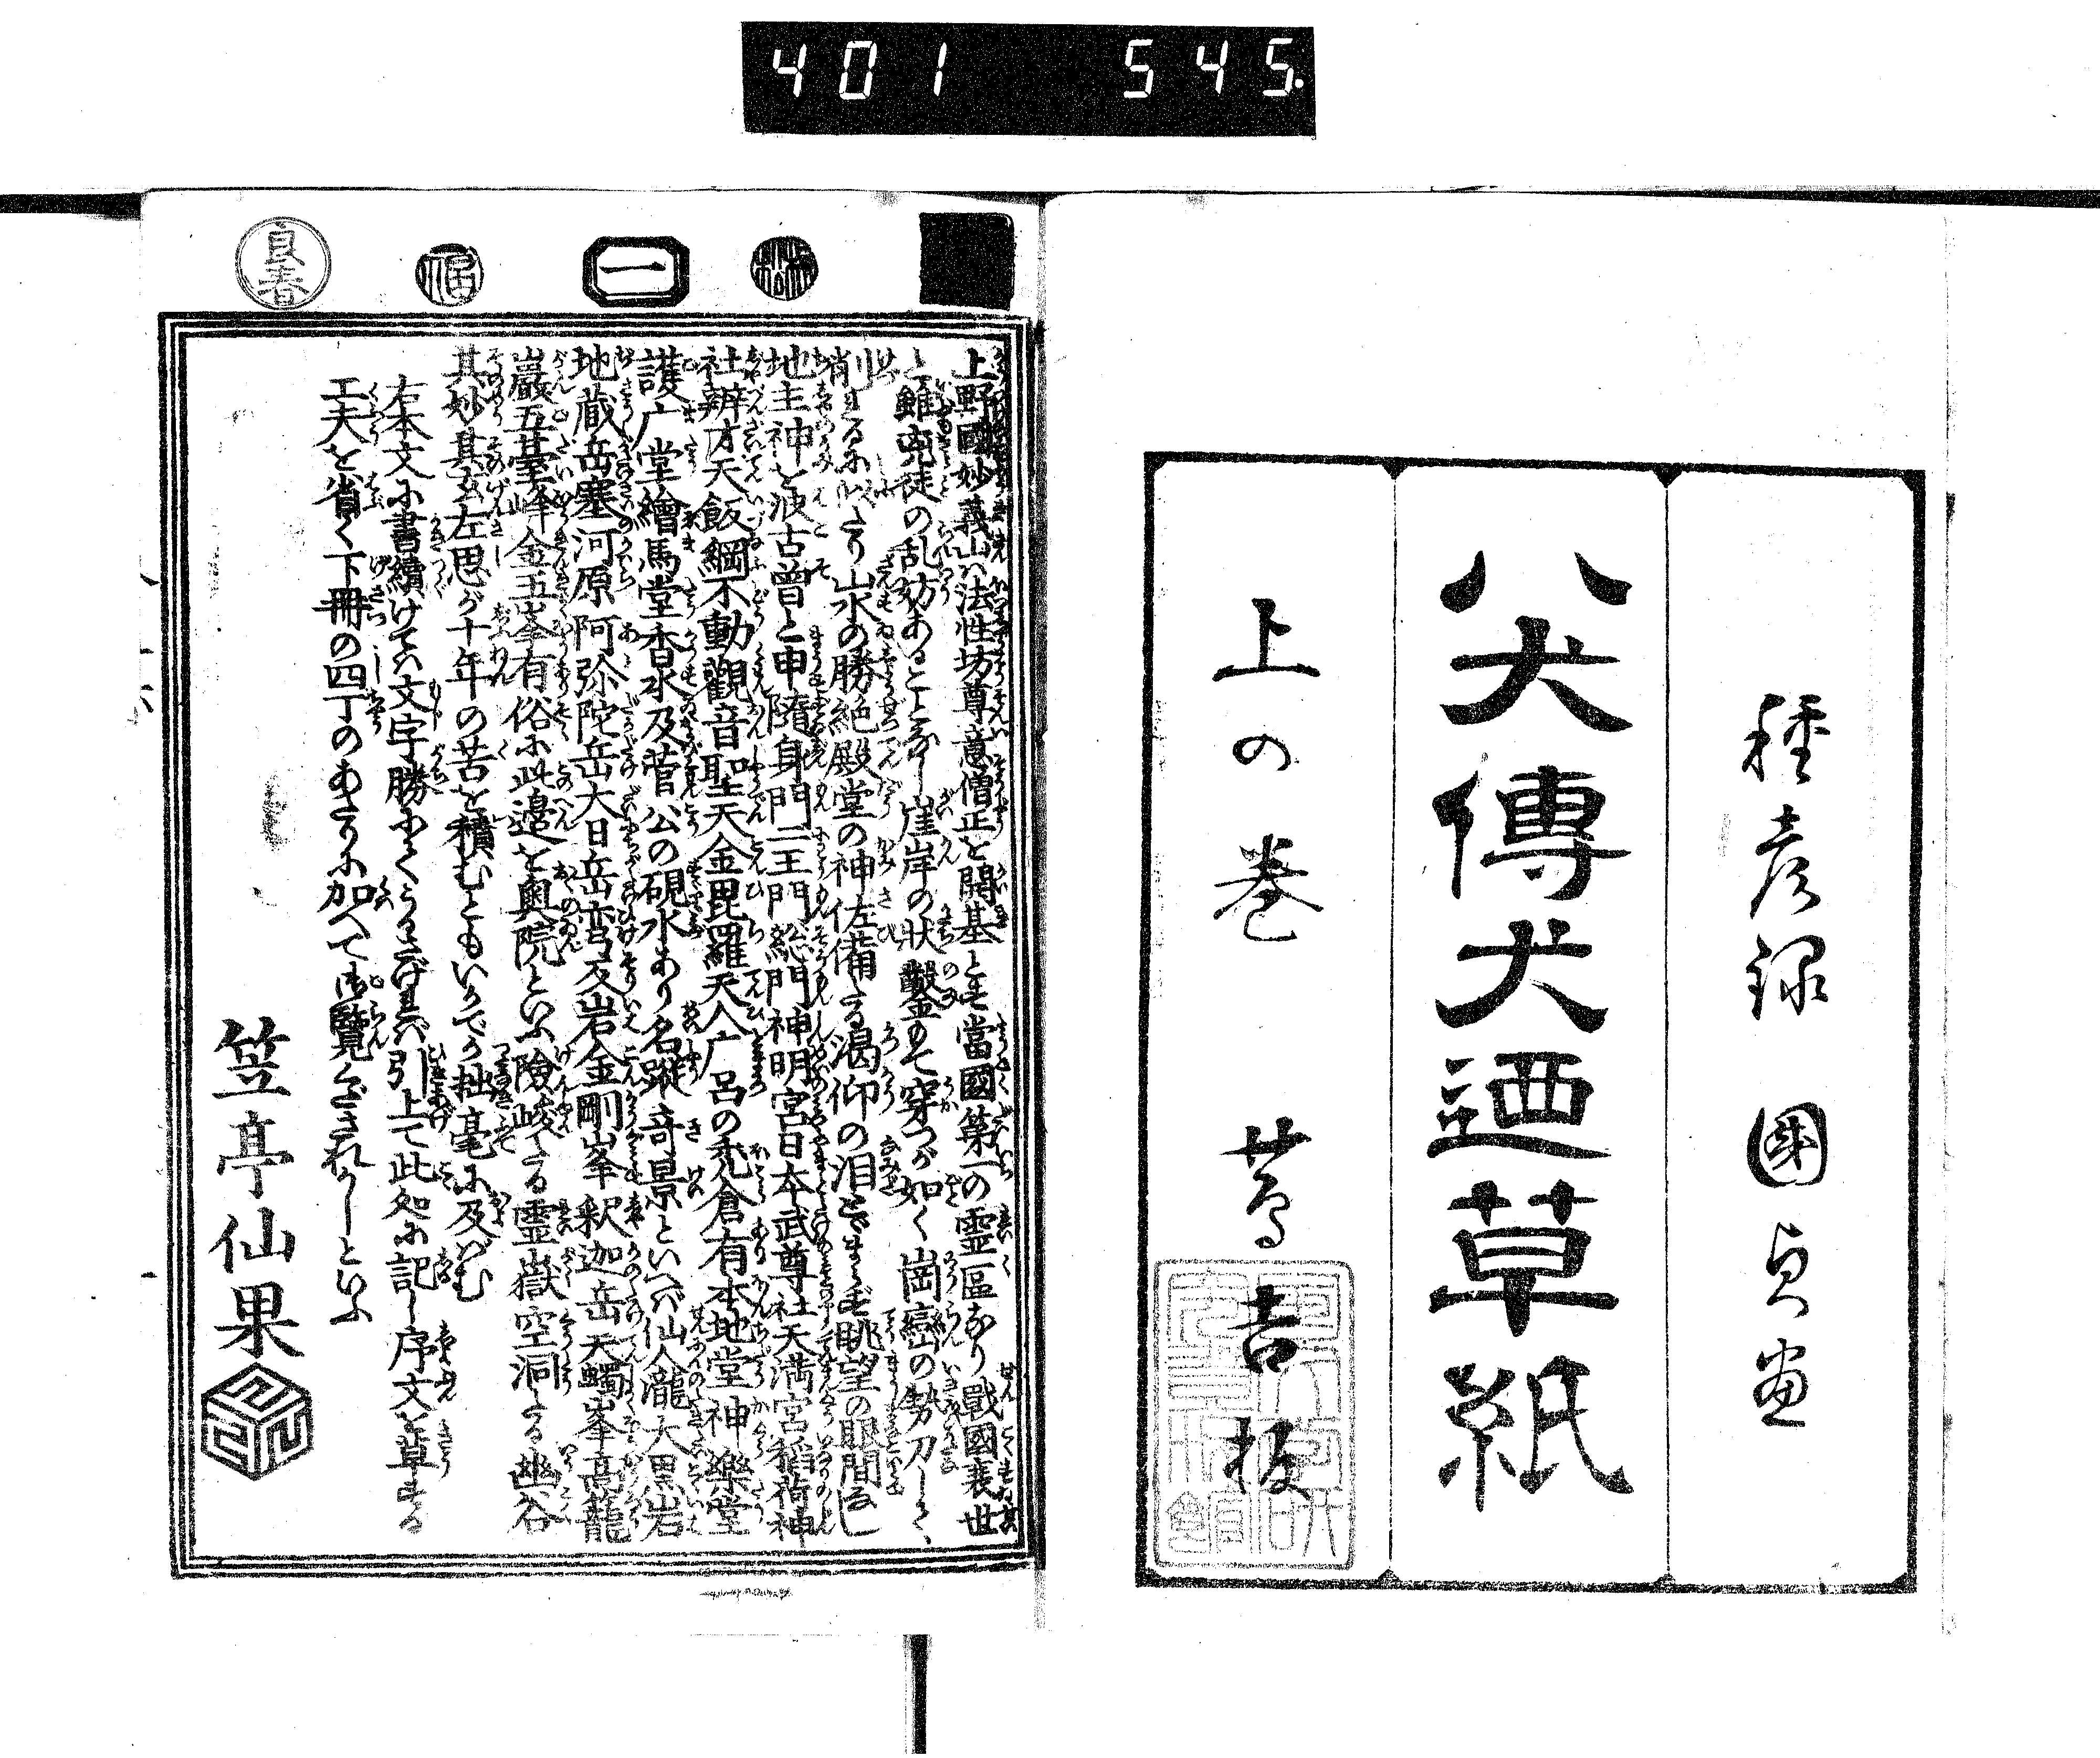 401 545.
種彦録 國貞画
八犬傳犬廼草紙
上の巻 蔦吉板
一
良春
上野國妙義山ハ法性坊尊意僧正を開基とす當國第一の霊區なり戰國衰世
と雖兇徒の乱妨あることなし崖岸の状鑿もて穿つが如く崗巒の勢刀して
削るに似たり山水の勝絶殿堂の神佐備たる渇仰の泪とゞまらず眺望の眼間なし
地主神を波古曽と申隋身門二王門総門神明宮日本武尊社天満宮稲荷神
社辨才天飯綱不動觀音聖天金毘羅天人广呂の禿倉有本地堂神樂堂
護广堂繪馬堂香水及菅公の硯水あり名蹤竒景といへバ仙人瀧大黒岩
地蔵岳塞河原阿弥陀岳大日岳弯及岩金剛峯釈迦岳天蠋峯髙籠
巖五臺峰金五峯有俗に此邉を奥院といふ險峻たる霊嶽空洞たる幽谷
其妙其玄左思が十年の苦を積むともいかでか拙毫に及バむ
右本文に書續けてハ文字勝にてくうるさげなれバ引上て此処に記し序文を草する
工夫を省く下冊の四丁のあたりに加へて御覧くだされかしといふ
笠亭仙果